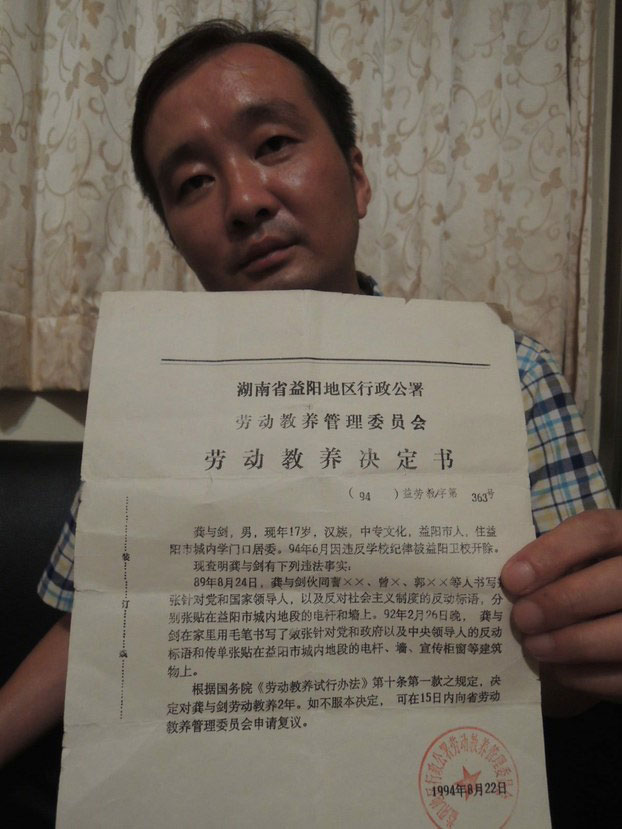 湖南省益阳地区行政公署
劳动教养管理委员会
劳动教养决定书
(94)益劳教字第363号
龚与剑，男，现年17岁，汉族，中专文化，益阳市人，住益
阳市城内学门口居委。94年6月因违反学校纪律被益阳卫校开除。
现查明龚与剑有下列违法事实：
89年8月24日，龚与剑伙同曹××、曾×、郭××等人书写
张针对党和国家领导人，以及反对社会主义制度的反动标语，分
别张贴在益阳市城内地段的电杆和墙上。92年2月26日晚，龚与
剑在家里用毛笔书写了数张针对党和政府以及中央领导人的反动
标语和传单张贴在益阳市城内地段的电杆、墙、宣传柜窗等建筑
物上。
根据国务院《劳动教养试行办法》第十条第一款之规定，决
定对龚与剑劳动教养2年。如不服本决定，可在15日内向省劳动
教养管理委员会申请复议。
1994年8月22日
装订线
行政公署劳动教养管理委员会